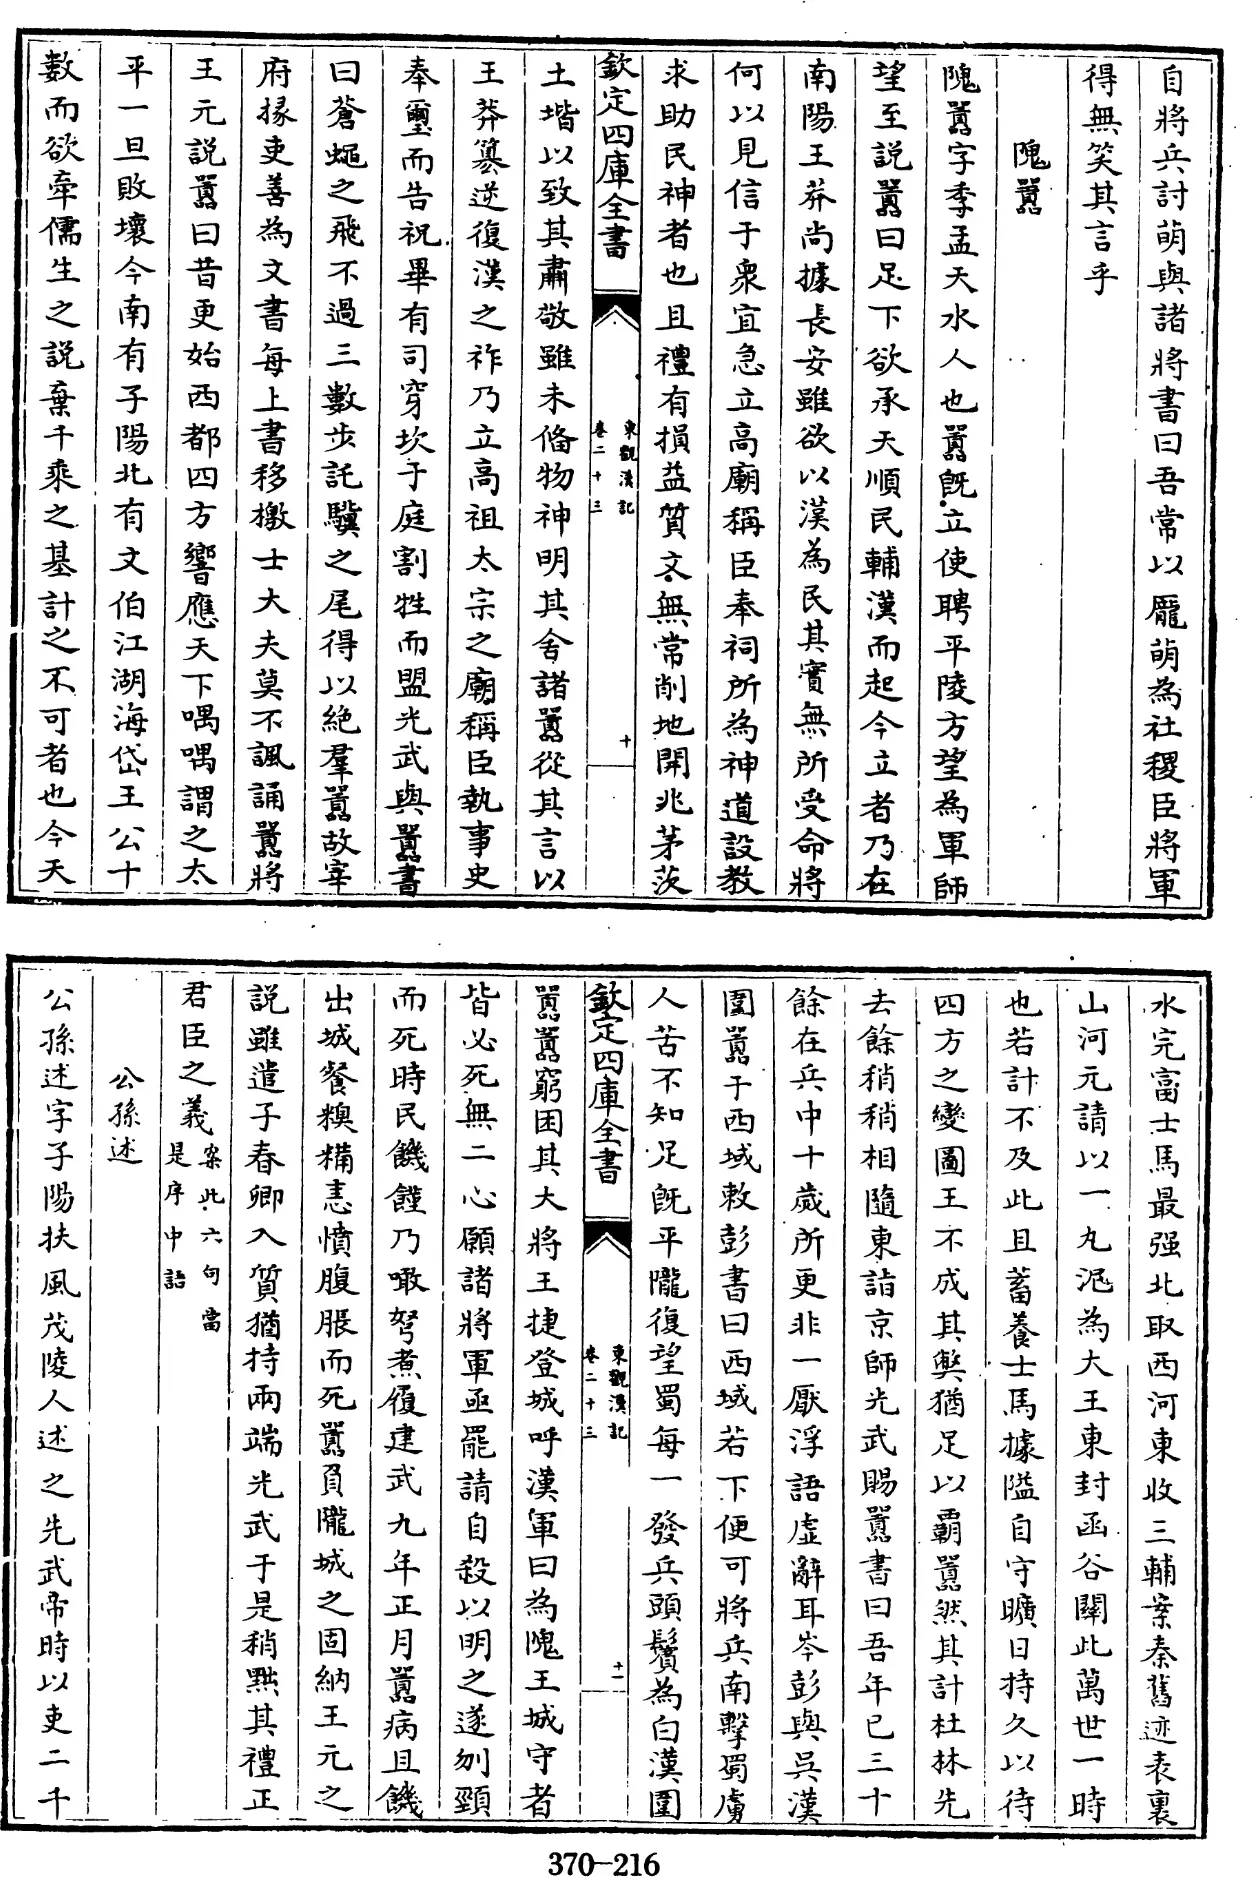 自將兵討萌與諸將書曰吾常以龎萌為社稷臣將軍
得無笑其言乎
隗囂
隗囂字季孟天水人也囂既立使聘平陵方望為軍師
望至説囂曰足下欲承天順民輔漢而起今立者乃在
南陽王莽尚據長安雖欲以漢為民其實無所受命將
何以見信于衆宜急立高廟稱臣奉祠所為神道設教
求助民神者也且禮有損益質文無常削地開兆茅茨
欽定四庫全書
東觀漢記
卷二十三
十
土堦以致其肅敬雖未俻物神明其舍諸囂從其言以
王莽簒逆復漢之祚乃立高祖太宗之廟稱臣執事史
奉璽而告祝畢有司穿坎于庭割牲而盟光武與囂書
曰蒼蠅之飛不過三數步託驥之尾得以絶羣囂故宰
府掾吏善為文書每上書移檄士大夫莫不諷誦囂將
王元説囂曰昔更始西都四方響應天下喁喁謂之太
平一旦敗壞今南有子陽北有文伯江湖海岱王公十
數而欲牽儒生之説棄千乘之基計之不可者也今天
水完富士馬最强北取西河東收三輔案秦舊迹表裏
山河元請以一丸泥為大王東封函谷關此萬世一時
也若計不及此且蓄養士馬據隘自守曠日持久以待
四方之變圖王不成其弊猶足以霸囂然其計杜林先
去餘稍稍相隨東詣京師光武賜囂書曰吾年已三十
餘在兵中十歲所更非一厭浮語虛辭耳岑彭與吳漢
圍囂于西域敕彭書曰西域若下便可將兵南擊蜀虜
人苦不知足既平隴復望蜀每一發兵頭鬢為白漢圍
欽定四庫全書
東觀漢記
卷二十三
十一
囂囂窮困其大將王捷登城呼漢軍曰為隗王城守者
皆必死無二心願諸將軍亟罷請自殺以明之遂刎頸
而死時民饑饉乃噉弩煮履建武九年正月囂病且饑
出城餐糗糒恚憤腹脹而死囂負隴城之固納王元之
説雖遣子春卿入質猶持兩端光武于是稍黜其禮正
君臣之義案此六句當
是序中語
公孫述
公孫述字子陽扶風茂陵人述之先武帝時以吏二千
370-216